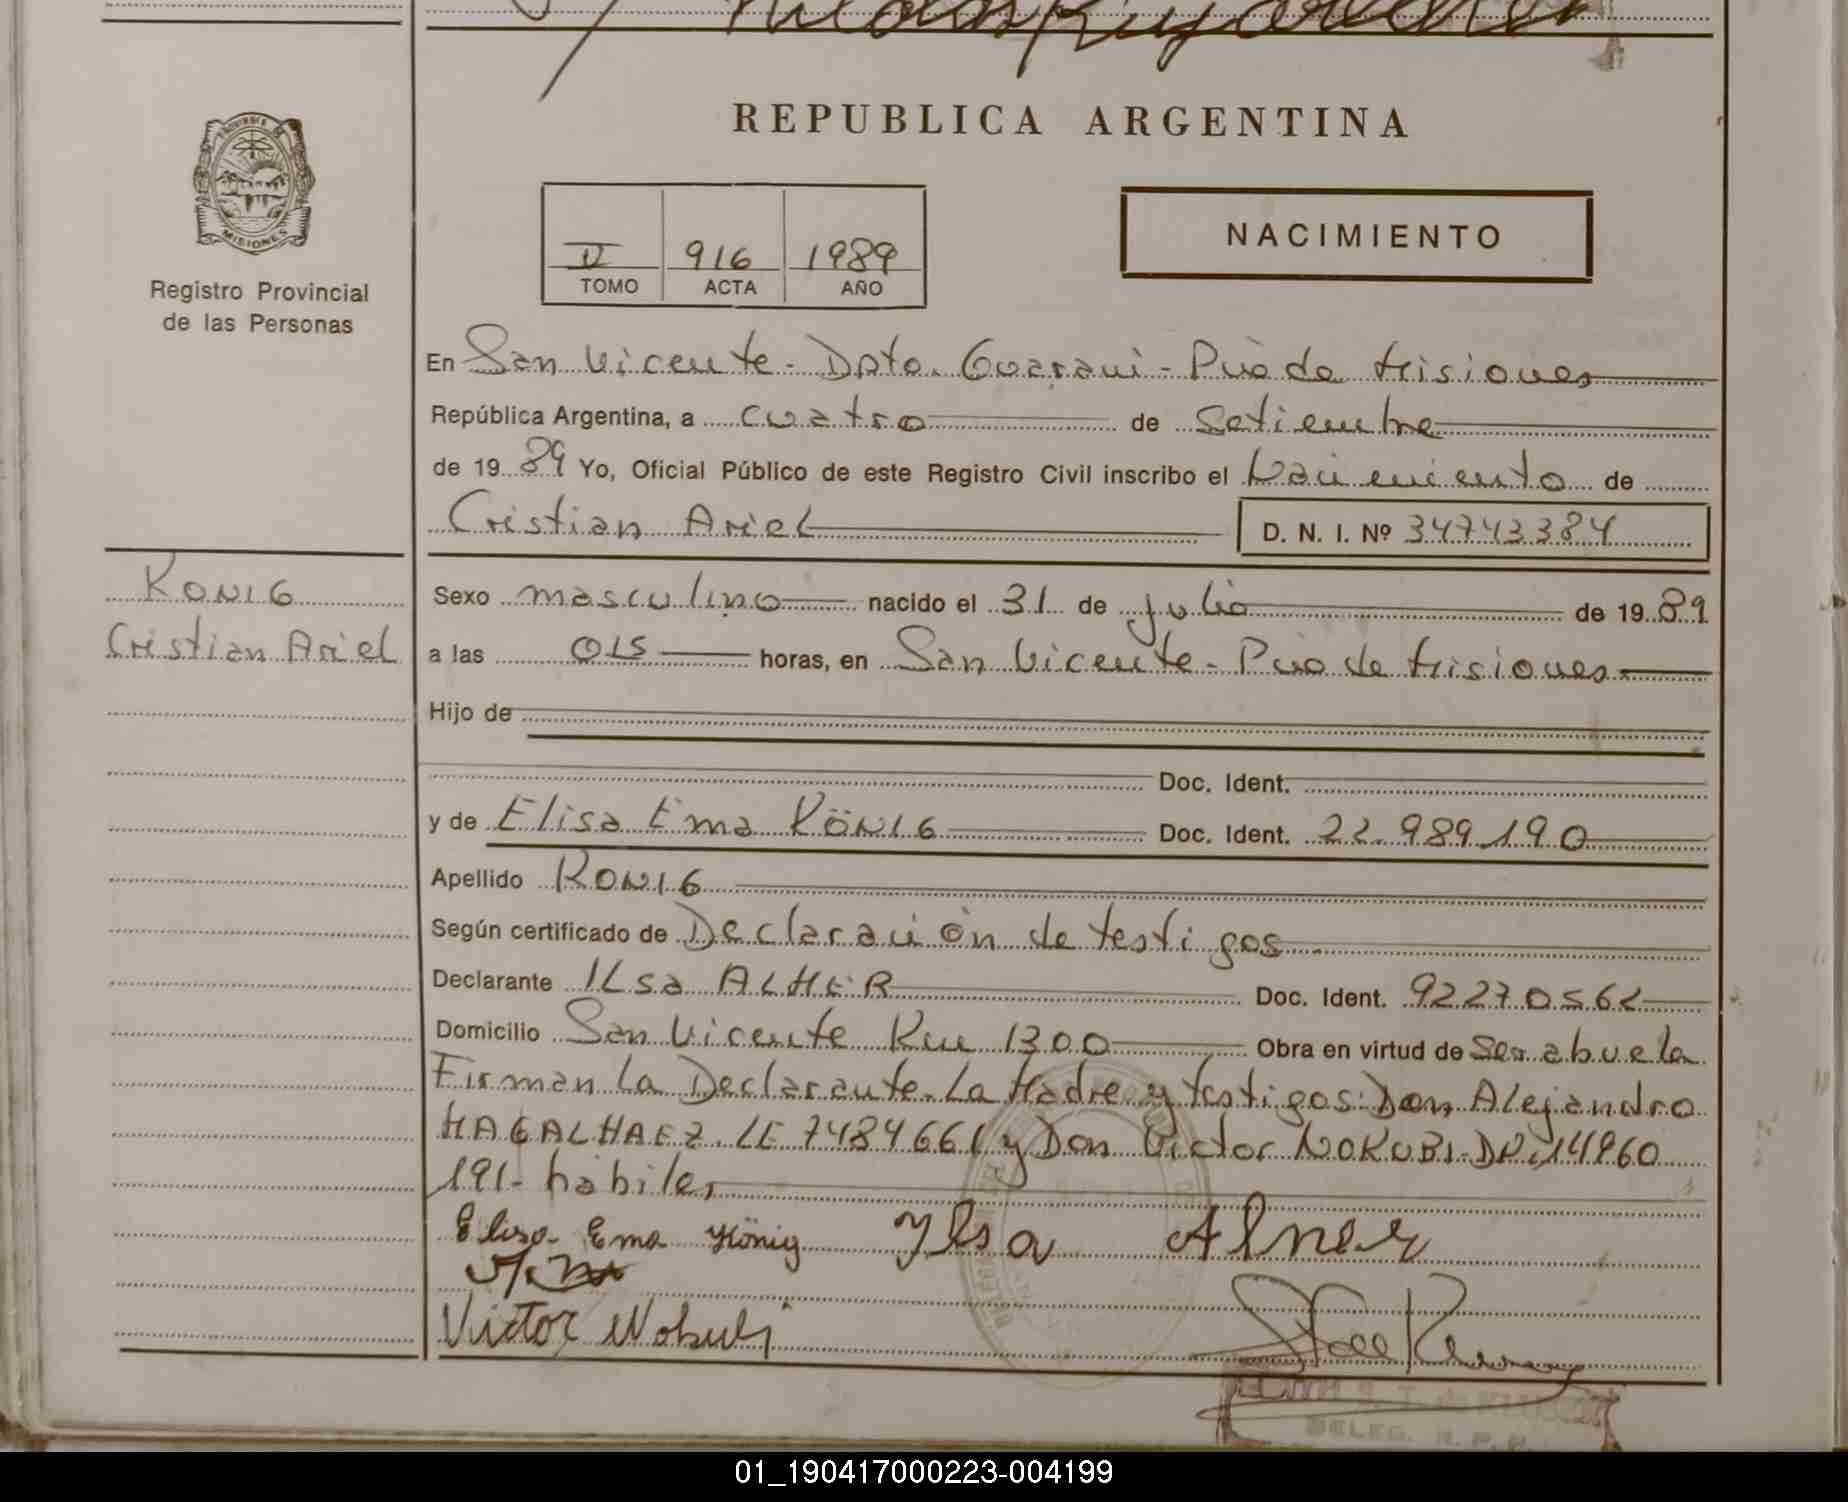 REPUBLICA ARGENTINA
PROVINCIA DE
MISIONES
Registro Provincial
de las Personas
II 916 1989
TOMO ACTA AÑO
NACIMIENTO
En San Vicente - Dpto. Guarani - Pcia de Misiones
República Argentina, a cuatro de Setiembre
de 1989 Yo, Oficial Público de este Registro Civil inscribo el Nacimiento de
Cristian Ariel D. N. I. Nº 34743384
KONIG
Cristian Ariel
Sexo masculino nacido el 31 de julio de 1989
a las 015 horas, en San Vicente - Pcia de Misiones
Hijo de
Doc. Ident.
y de Elisa Ema KÖNIG Doc. Ident. 22.989.190
Apellido KONIG
Según certificado de Declaración de testigos
Declarante ILsa ALHER Doc. Ident. 92270562
Domicilio San Vicente Km 1300 Obra en virtud de Ser abuela
Firman La Declarante. La Madre y testigos: Don Alejandro
MAGALHAEZ. LE 7484661 y Don Victor NOKUBI. DNI 14960
191- habiles
Elisa Ema König Ylsa Alner
Victor Nokubi
DELEG. R. P. P.
01_190417000223-004199